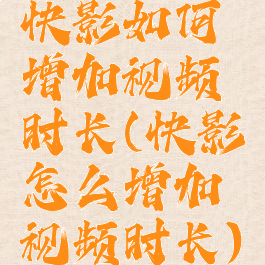 快影如何
增加视频
时长(快影
怎么增加
视频时长)